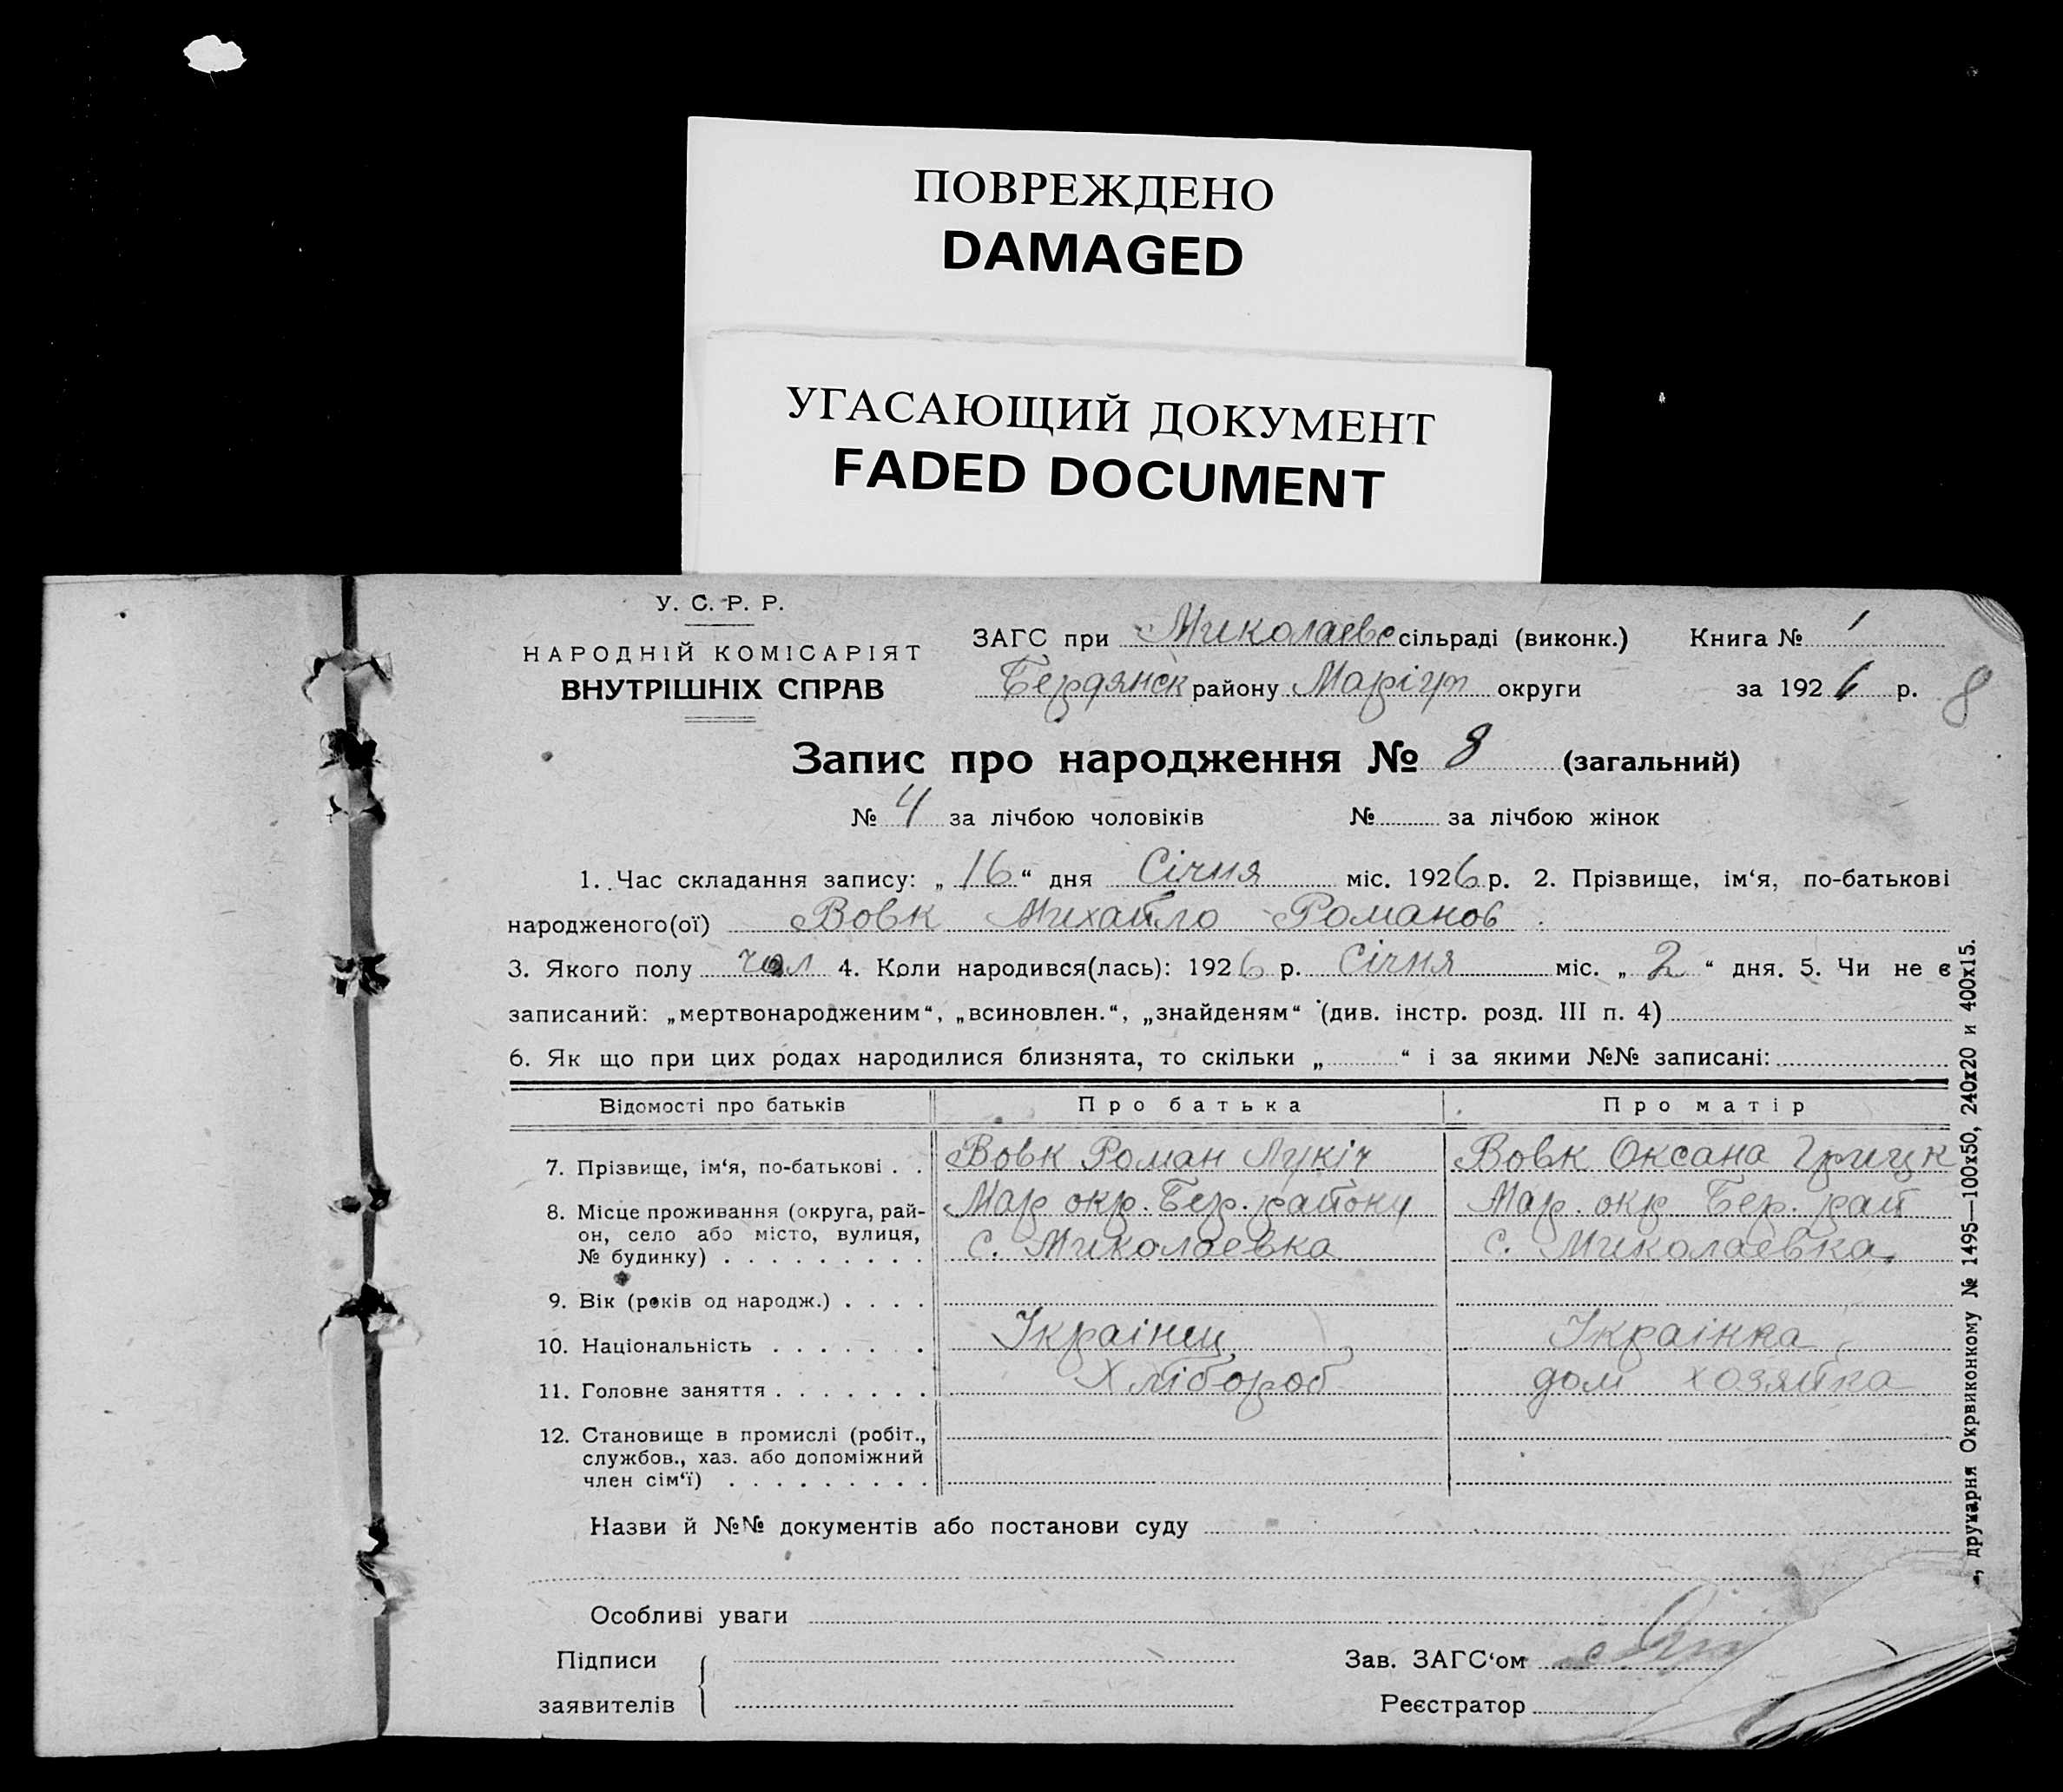 ПОВРЕЖДЕНО
DAMAGED
УГАСАЮЩИЙ ДОКУМЕНТ
FADED DOCUMENT
У. С. Р. Р.
НАРОДНІЙ КОМІСАРІЯТ
ВНУТРІШНІХ СПРАВ
ЗАГС при Миколаевс сільраді (виконк.) Книга № 1
Бердянск району Маріуп округи за 1926 р. 8
Запис про народження № 8 (загальний)
№ 4 за лічбою чоловіків № за лічбою жінок
1. Час складання запису: „16“ дня Січня міс. 1926 р. 2. Прізвище, ім‘я, по-батькові
народженого(ої) Вовк Михайло Романов
3. Якого полу чол 4. Коли народився(лась): 1926 р. Січня міс. „2“ дня. 5. Чи не є
записаний: „мертвонародженим“, „всиновлен.“, „знайденям“ (див. інстр. розд. III п. 4)
6. Як що при цих родах народилися близнята, то скільки „ “ і за якими №№ записані:
Відомості про батьків Про батька Про матір
7. Прізвище, ім‘я, по-батькові . . Вовк Роман Лукіч Вовк Оксана Грицк
8. Місце проживання (округа, рай- Мар окр. Бер. району Мар. окр Бер. рай
он, село або місто, вулиця, с. Миколаевка с. Миколаевка.
№ будинку) . . . . . . . . .
9. Вік (років од народж.) . . . .
10. Національність . . . . . . . Українец Українка
11. Головне заняття . . . . . . . Хлібороб дом хозяйка
12. Становище в промислі (робіт.,
службов., хаз. або допоміжний
член сім‘ї) . . . . . . . . .
Назви й №№ документів або постанови суду
Особливі уваги
Підписи Зав. ЗАГС‘ом
заявителів Реєстратор
друкарня Окрвиконкому № 1495—100x50, 240x20 и 400x15.